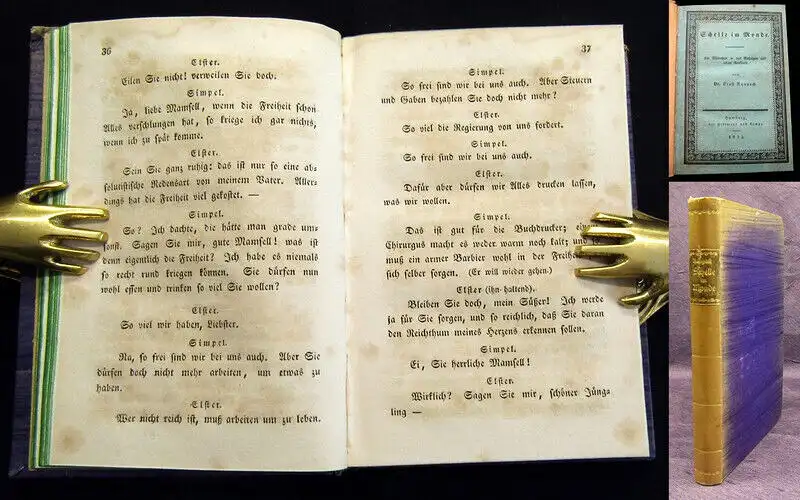 36
Elster.
Eilen Sie nicht! verweilen Sie doch.
Simpel.
Ja, liebe Mamsell, wenn die Freiheit schon
Alles verschlungen hat, so kriege ich gar nichts,
wenn ich zu spät komme.
Elster.
Sein Sie ganz ruhig: das ist nur so eine ab-
solutistische Redensart von meinem Vater. Aller-
dings hat die Freiheit viel gekostet. —
Simpel.
So? Ich dachte, die hätte man grade um-
sonst. Sagen Sie mir, gute Mamsell! was ist
denn eigentlich die Freiheit? Ich habe es niemals
so recht rund kriegen können. Sie dürfen nun
wohl essen und trinken so viel Sie wollen?
Elster.
So viel wir haben, Liebster.
Simpel.
Na, so frei sind wir bei uns auch. Aber Sie
dürfen doch nicht mehr arbeiten, um etwas zu
haben.
Elster.
Wer nicht reich ist, muß arbeiten um zu leben.
37
Simpel.
So frei sind wir bei uns auch. Aber Steuern
und Gaben bezahlen Sie doch nicht mehr?
Elster.
So viel die Regierung von uns fordert.
Simpel.
So frei sind wir bei uns auch.
Elster.
Dafür aber dürfen wir Alles drucken lassen,
was wir wollen.
Simpel.
Das ist gut für die Buchdrucker;
Chirurgus macht es weder warm noch kalt; und
muß ein armer Barbier wohl in der Freiheit
sich selber sorgen. (Er will wieder gehen)
Elster (ihn haltend).
Bleiben Sie doch, mein Süßer! Ich werde
ja für Sie sorgen, und so reichlich, daß Sie daran
den Reichthum meines Herzens erkennen sollen.
Simpel.
Ei, Sie herrliche Mamsell!
Elster.
Wirklich? Sagen Sie mir, schöner Jüng-
ling —
Schelle im Monde.
von
Dr. Ernst Raupach
Hamburg,
Schelle
im
Monde